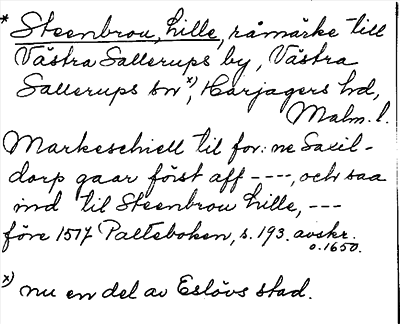 * Steenbrou, hille, råmärke till
Västra Sallerups by, Västra
Sallerups sn x), Harjagers hd,
Malm. l.
Markeschiell til for:ne Saxil-
dorp gaar först aff ----, och saa
ind til Steenbrou hille, ---
före 1517 Palteboken, s. 193. avskr.
o. 1650.
x) nu en del av Eslövs stad.